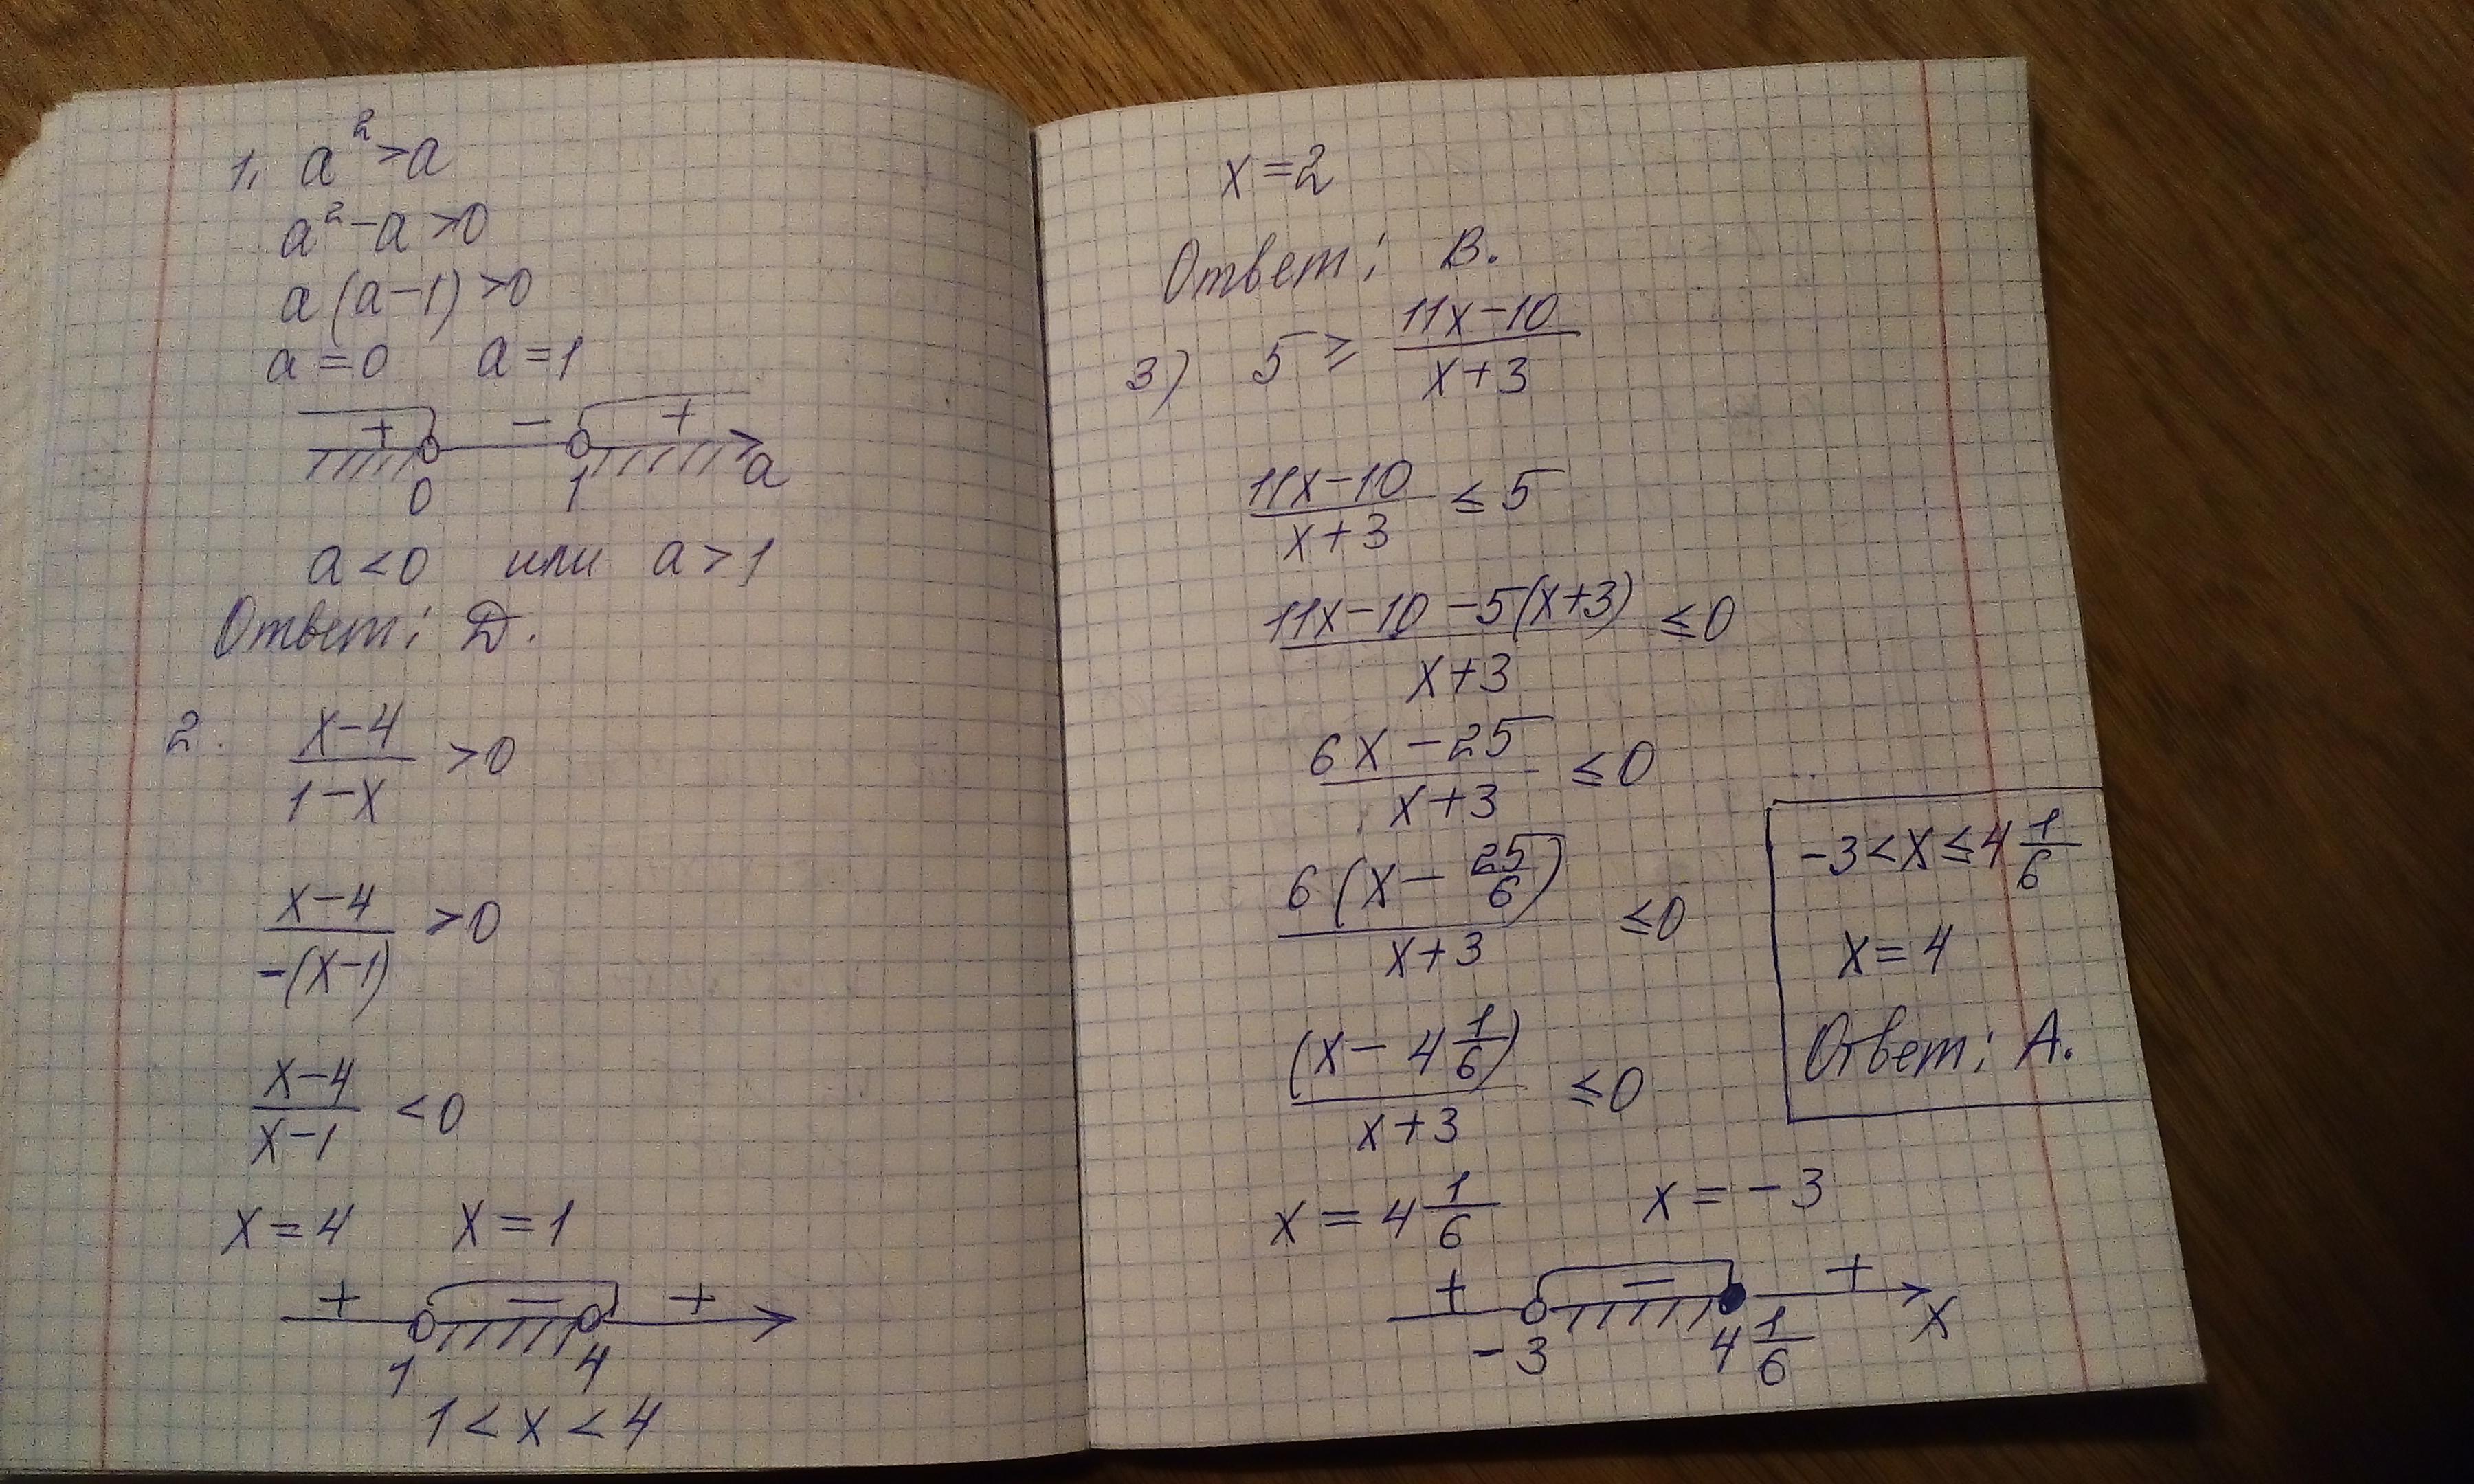 1. a² > a
a² - a > 0
a(a-1) > 0
a = 0 a = 1
+ - +
0 1 a
a < 0 или a > 1
Ответ: D.
2. (x-4)/(1-x) > 0
(x-4)/(-(x-1)) > 0
(x-4)/(x-1) < 0
x = 4 x = 1
+ - +
1 4
1 < x < 4
x = 2
Ответ: B.
3) 5 ≥ (11x-10)/(x+3)
(11x-10)/(x+3) ≤ 5
(11x-10-5(x+3))/(x+3) ≤ 0
(6x-25)/(x+3) ≤ 0
6(x - 25/6)/(x+3) ≤ 0
(x - 4 1/6)/(x+3) ≤ 0
x = 4 1/6 x = -3
+ - +
-3 4 1/6 x
-3 < x ≤ 4 1/6
x = 4
Ответ: A.